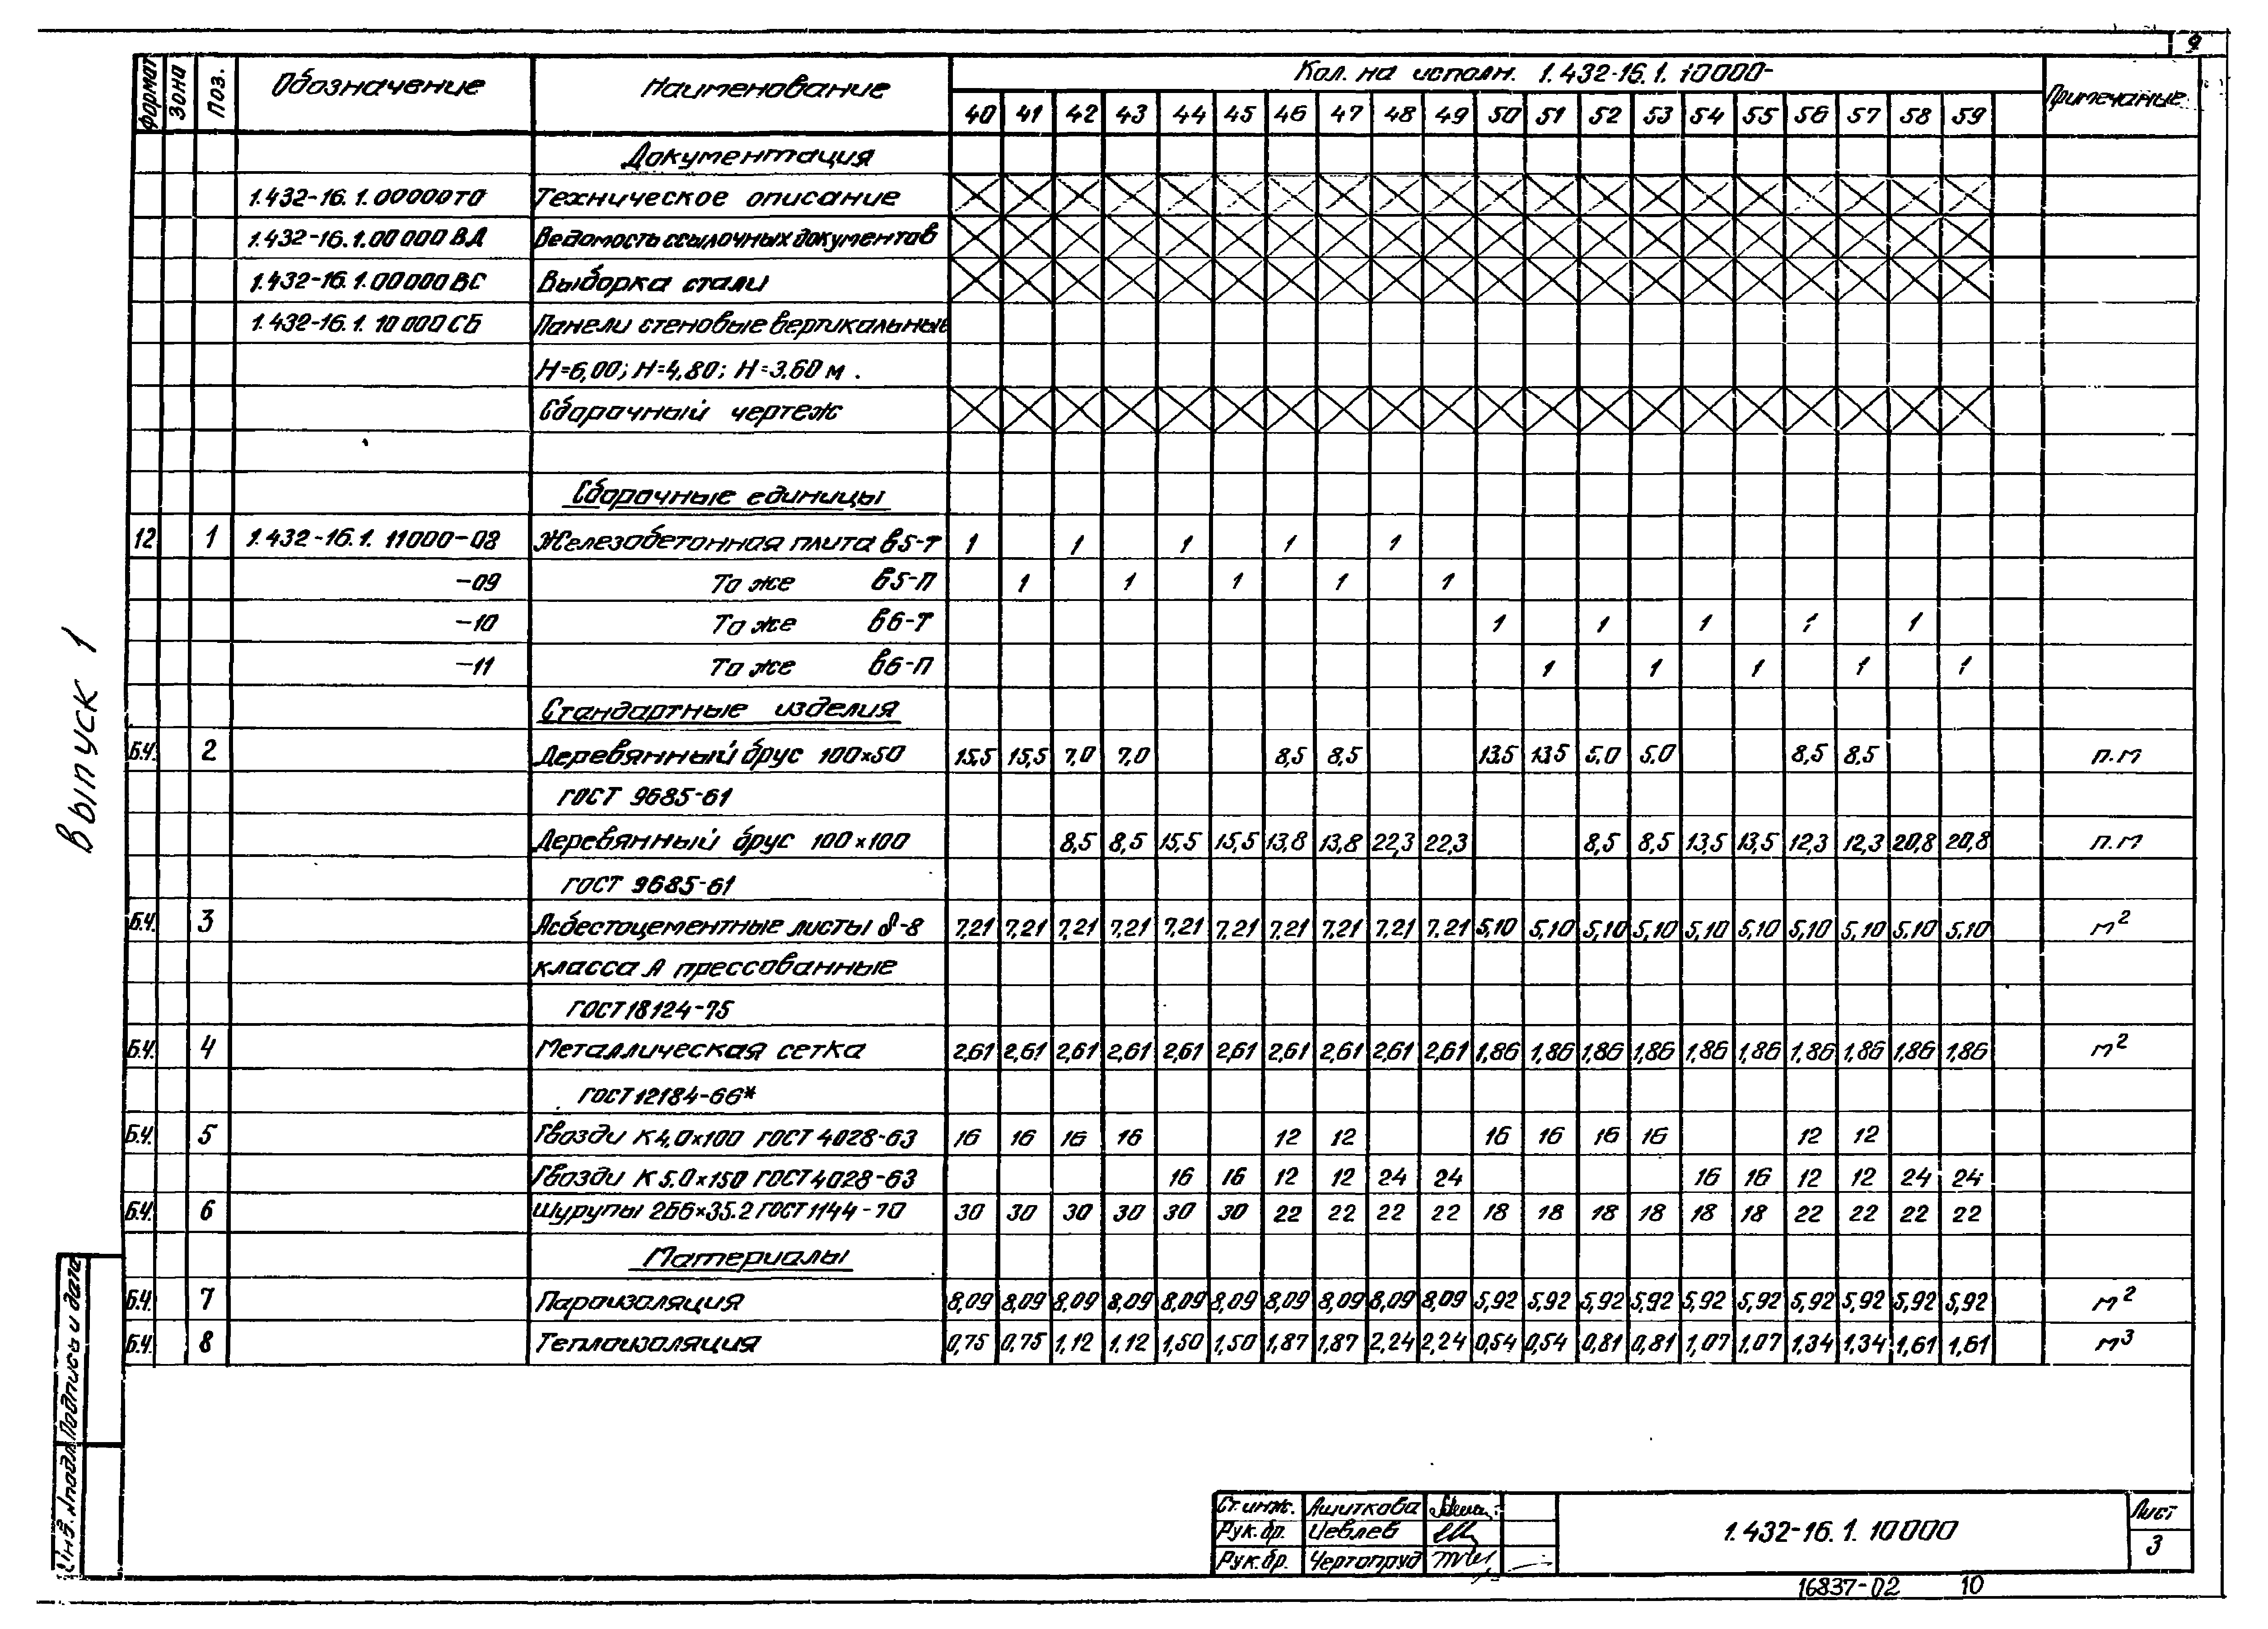 9
Формат Зона Поз. Обозначение Наименование Кол. на исполн. 1.432-16.1.10000- Примечание
40 41 42 43 44 45 46 47 48 49 50 51 52 53 54 55 56 57 58 59
Документация
1.432-16.1.00000ТО Техническое описание
1.432-16.1.00000ВД Ведомость ссылочных документов
1.432-16.1.00000ВС Выборка стали
1.432-16.1.10000СБ Панели стеновые вертикальные
Н=6,00; Н=4,80; Н=3.60 м.
Сборочный чертеж
Сборочные единицы
12 1 1.432-16.1.11000-08 Железобетонная плита В5-Т 1 1 1 1 1
-09 То же В5-П 1 1 1 1 1
-10 То же В6-Т 1 1 1 1 1
-11 То же В6-П 1 1 1 1 1
Стандартные изделия
Б.Ч. 2 Деревянный брус 100×50 15,5 15,5 7,0 7,0 8,5 8,5 13,5 13,5 5,0 5,0 8,5 8,5 п.м
ГОСТ 9685-61
Деревянный брус 100×100 8,5 8,5 15,5 15,5 13,8 13,8 22,3 22,3 8,5 8,5 13,5 13,5 12,3 12,3 20,8 20,8 п.м
ГОСТ 9685-61
Б.Ч. 3 Асбестоцементные листы δ-8 7,21 7,21 7,21 7,21 7,21 7,21 7,21 7,21 7,21 7,21 5,10 5,10 5,10 5,10 5,10 5,10 5,10 5,10 5,10 5,10 м²
класса А прессованные
ГОСТ 18124-75
Б.Ч. 4 Металлическая сетка 2,61 2,61 2,61 2,61 2,61 2,61 2,61 2,61 2,61 2,61 1,86 1,86 1,86 1,86 1,86 1,86 1,86 1,86 1,86 1,86 м²
ГОСТ 12184-66*
Б.Ч. 5 Гвозди К4,0×100 ГОСТ 4028-63 16 16 16 16 12 12 16 16 16 16 12 12
Гвозди К5.0×150 ГОСТ 4028-63 16 16 12 12 24 24 16 16 12 12 24 24
Б.Ч. 6 Шурупы 2Б6×35.2 ГОСТ 1144-70 30 30 30 30 30 30 22 22 22 22 18 18 18 18 18 18 22 22 22 22
Материалы
Б.Ч. 7 Пароизоляция 8,09 8,09 8,09 8,09 8,09 8,09 8,09 8,09 8,09 8,09 5,92 5,92 5,92 5,92 5,92 5,92 5,92 5,92 5,92 5,92 м²
Б.Ч. 8 Теплоизоляция 0,75 0,75 1,12 1,12 1,50 1,50 1,87 1,87 2,24 2,24 0,54 0,54 0,81 0,81 1,07 1,07 1,34 1,34 1,61 1,61 м³
Выпуск 1
Инв. №подл. Подпись и дата
Ст. инж. Ашиткова
Рук. бр. Иевлев
Рук. бр. Чертопруд
1.432-16.1.10000
Лист
3
16837-02 10